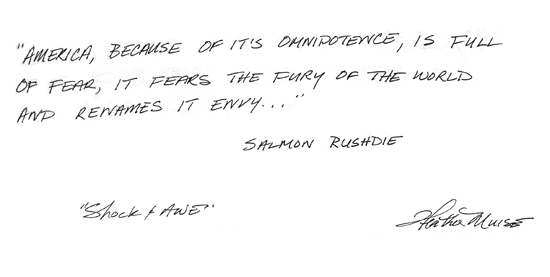 "AMERICA, BECAUSE OF IT'S OMNIPOTENCE, IS FULL
OF FEAR, IT FEARS THE FURY OF THE WORLD
AND RENAMES IT ENVY..."
SALMON RUSHDIE
"Shock & AWE"
Heather Muise